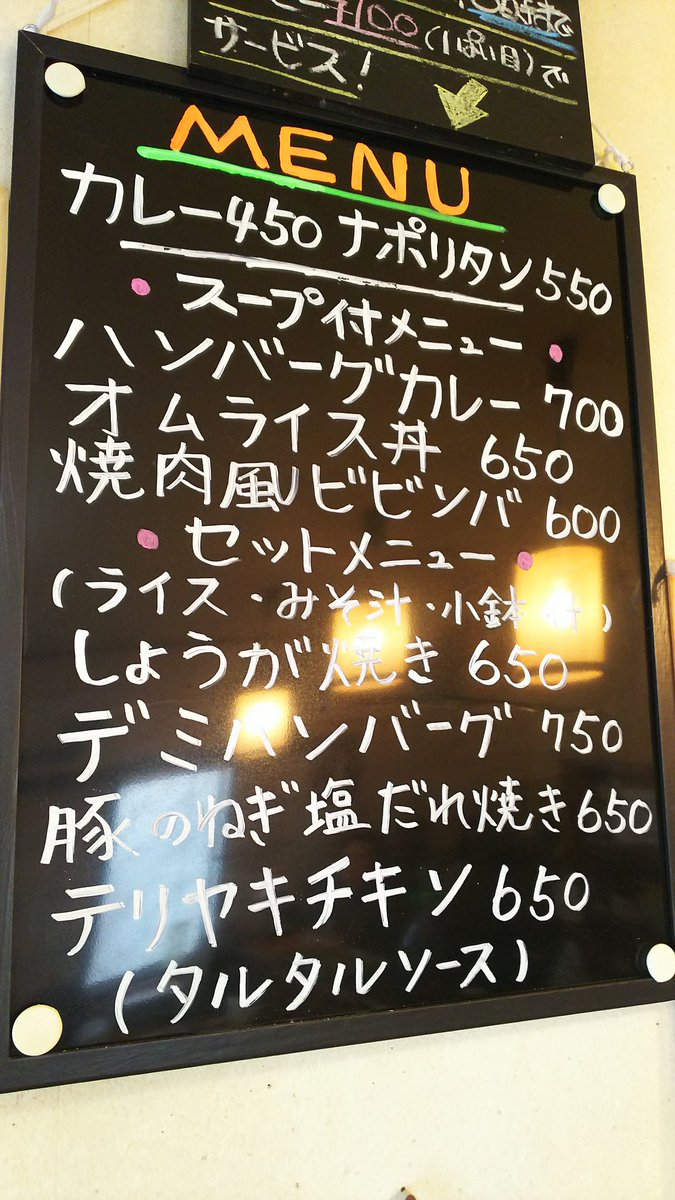 ¥100(1ぱい目)で
サービス!
MENU
カレー450 ナポリタン550
・スープ付メニュー・
ハンバーグカレー 700
オムライス丼 650
焼肉風ビビンバ 600
・セットメニュー・
(ライス・みそ汁・小鉢付)
しょうが焼き 650
デミハンバーグ 750
豚のねぎ塩だれ焼き650
テリヤキチキン650
(タルタルソース)